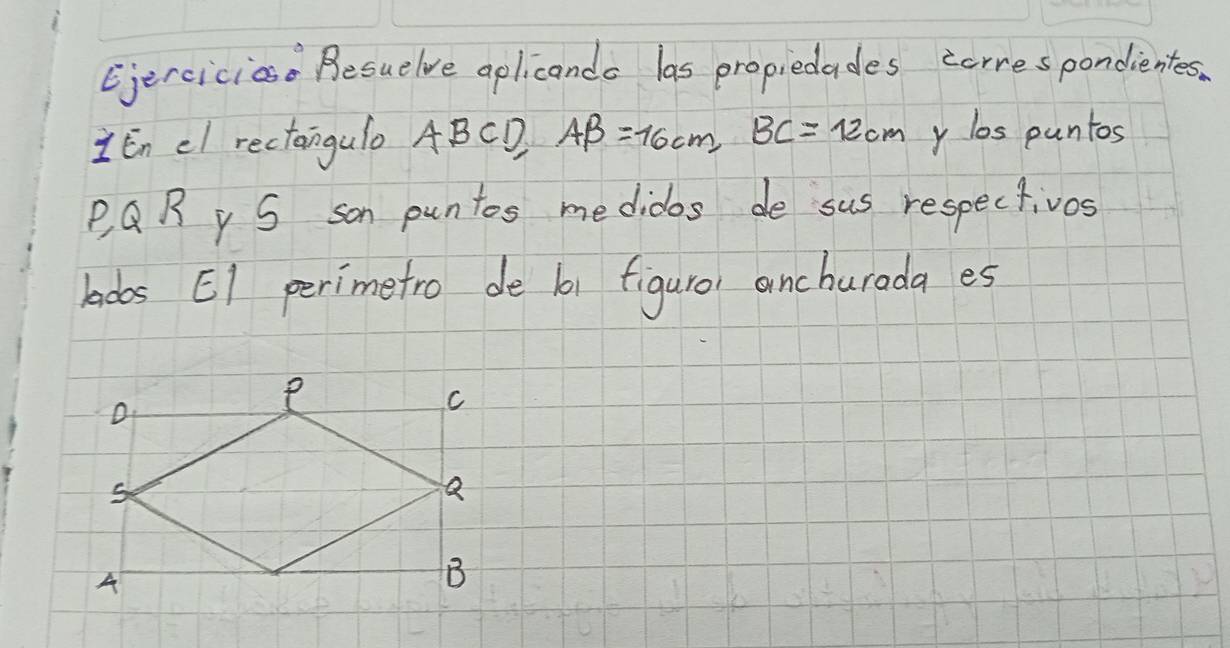 Ejercicios: Resuelve aplicando las propiedades correspondientes.
1 En el rectángulo ABCD, AB = 16cm, BC = 12cm y los puntos
P, Q R y S son puntos medidos de sus respectivos
lados El perímetro de la figura anchurada es
P
D C
S Q
A B